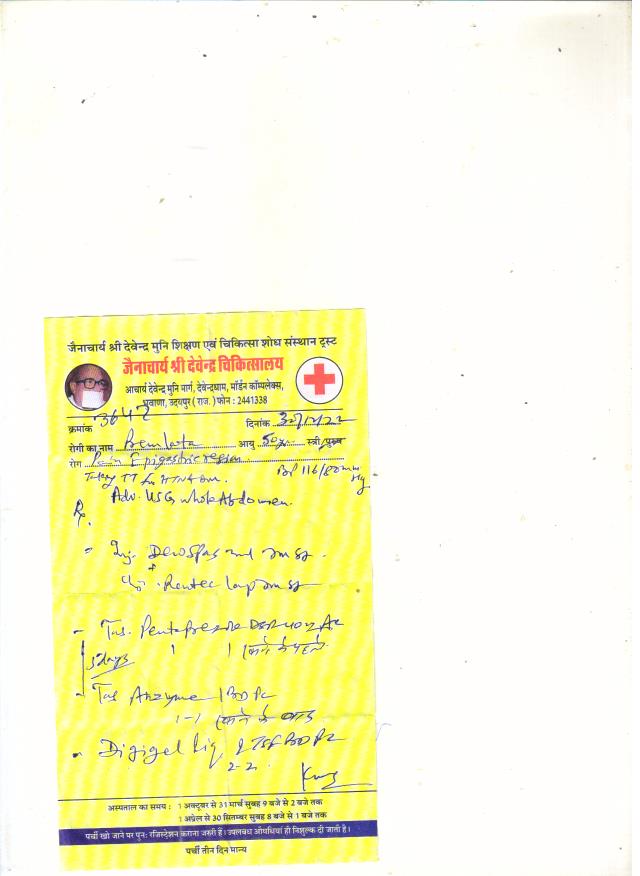 जैनाचार्य श्री देवेन्द्र मुनि शिक्षण एवं चिकित्सा शोध संस्थान ट्रस्ट
जैनाचार्य श्री देवेन्द्र चिकित्सालय
आचार्य देवेन्द्र मुनि मार्ग, देवेन्द्रधाम, मॉर्डन कॉम्पलेक्स,
भुवाणा, उदयपुर ( राज. ) फोन : 2441338
क्रमांक 3647 दिनांक
रोगी का नाम आयु 50 स्त्री/पुरुष
रोग Pain Epigastric region
BP 116/80 mm Hg
Adv. USG whole Abdomen.
Rx.
- Inj.
+
- Tab. DSR 40 AC
5 days 1 1 खाने के पहले
- Tab Anzyme 1 BD Pc
1-1 खाने के बाद
- Digigel Liq 2 TSF BD Pc
2-2
अस्पताल का समय : 1 अक्टूबर से 31 मार्च सुबह 9 बजे से 2 बजे तक
1 अप्रेल से 30 सितम्बर सुबह 8 बजे से 1 बजे तक
पर्ची खो जाने पर पुन: रजिस्ट्रेशन कराना जरुरी हैं। उपलब्ध औषधियां ही निशुल्क दी जाती है।
पर्ची तीन दिन मान्य